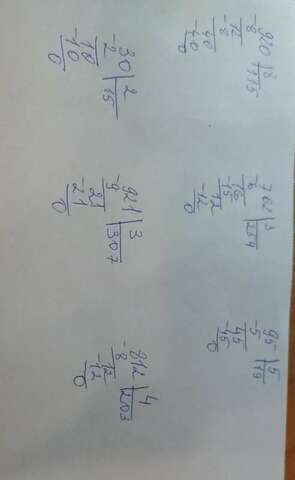 920 | 8
-8 | 115
12
-8
40
-40
0
762 | 3
-6 | 254
16
-15
12
-12
0
95 | 5
-5 | 19
45
-45
0
30 | 2
-2 | 15
10
-10
0
921 | 3
-9 | 307
21
-21
0
812 | 4
-8 | 203
12
-12
0